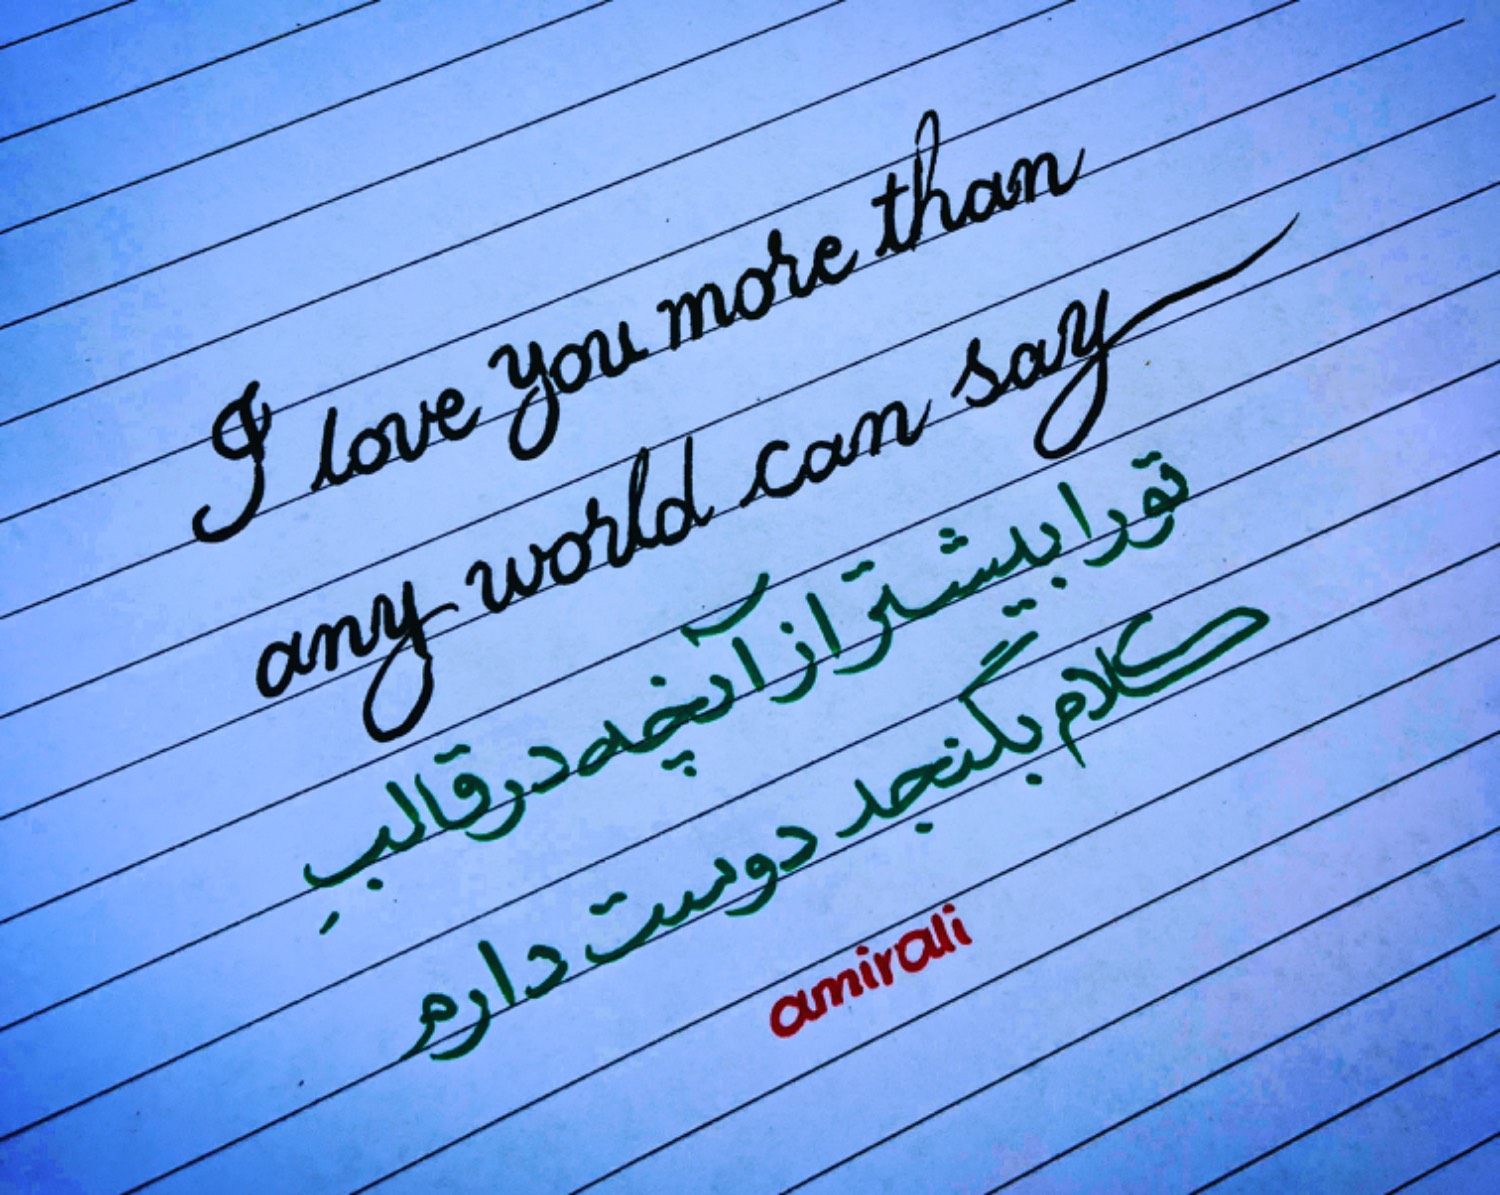 I love you more than
any world can say
تو را بیشتر از آنچه در قالبِ
کلام بگنجد دوست دارم
amirali